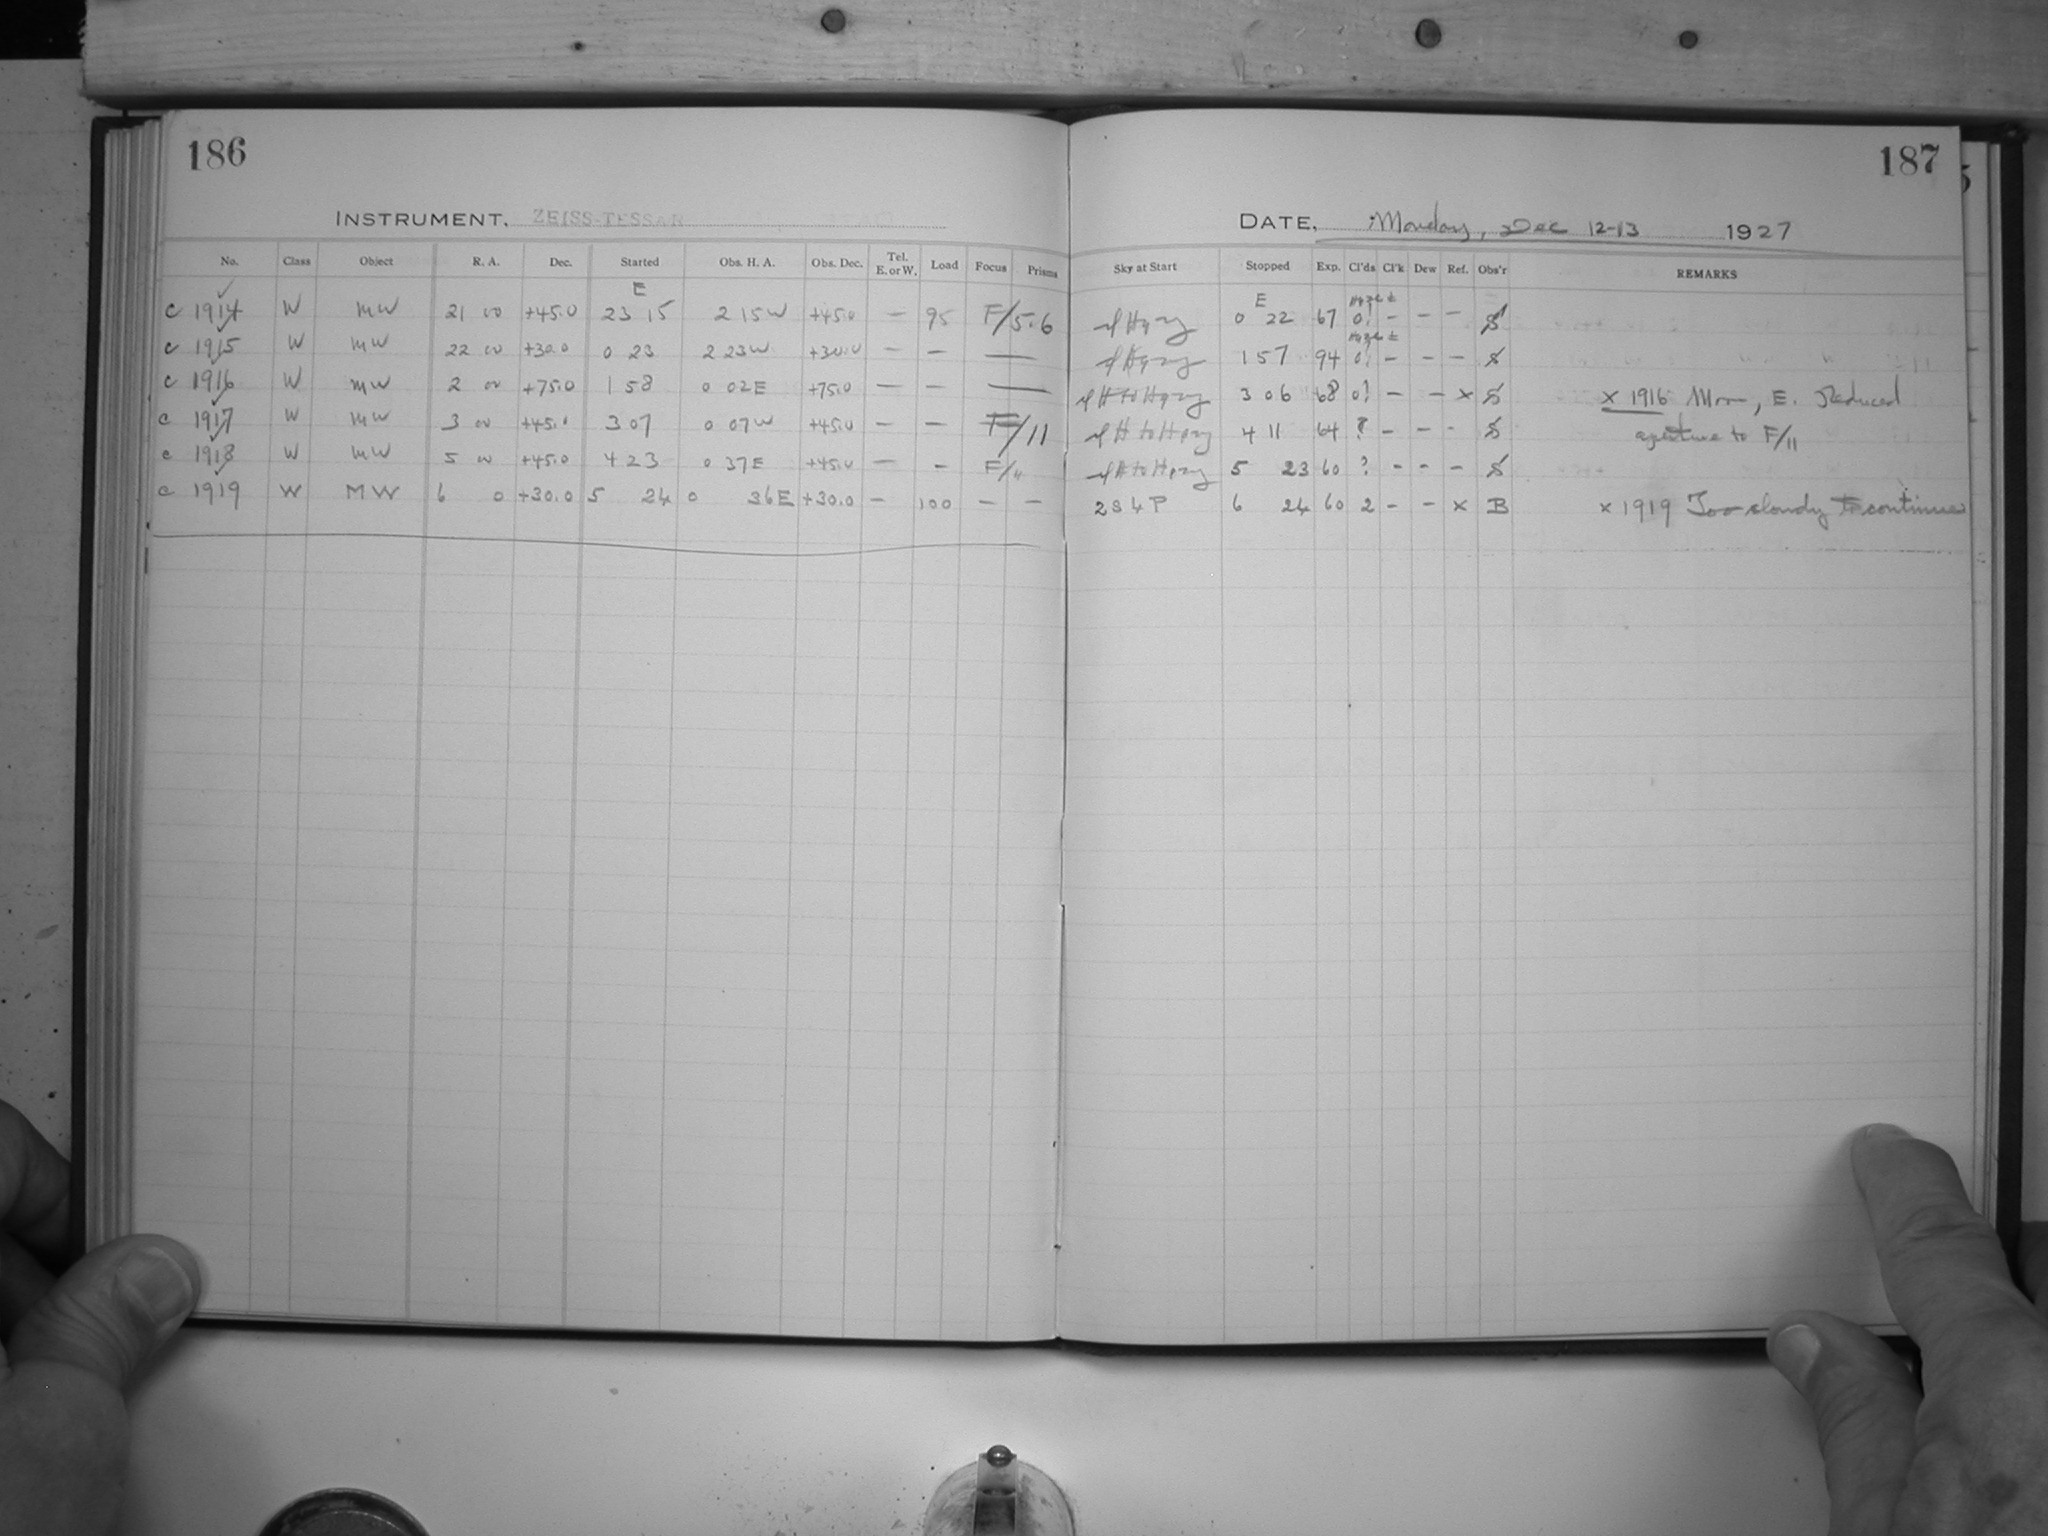 186
187
INSTRUMENT, ZEISS-TESSAR
DATE, Monday, Dec 12-13 1927
No. Class Object R. A. Dec. Started Obs. H. A. Obs. Dec. Tel. E. or W. Load Focus Prisms Sky at Start Stopped Exp. Cl'ds Cl'k Dew Ref. Obs'r REMARKS
E E Haze ±
c 1914 W MW 21 00 +45.0 23 15 2 15 W +45.0 — 95 F/5.6 0 22 67 0? - - - S
Haze ±
c 1915 W MW 22 00 +30.0 0 23 2 23 W +30.0 — — — 1 57 94 0? - - - S
c 1916 W MW 2 00 +75.0 1 58 0 02 E +75.0 — — — 3 06 68 0? - - x S x 1916 Moon, E. Reduced
c 1917 W MW 3 00 +45.0 3 07 0 07 W +45.0 — — F/11 4 11 64 ? - - - S aperture to F/11
c 1918 W MW 5 00 +45.0 4 23 0 37 E +45.0 — - F/11 5 23 60 ? - - - S
c 1919 W MW 6 0 +30.0 5 24 0 36 E +30.0 - 100 - - 2S4P 6 24 60 2 - - x B x 1919 Too cloudy to continue